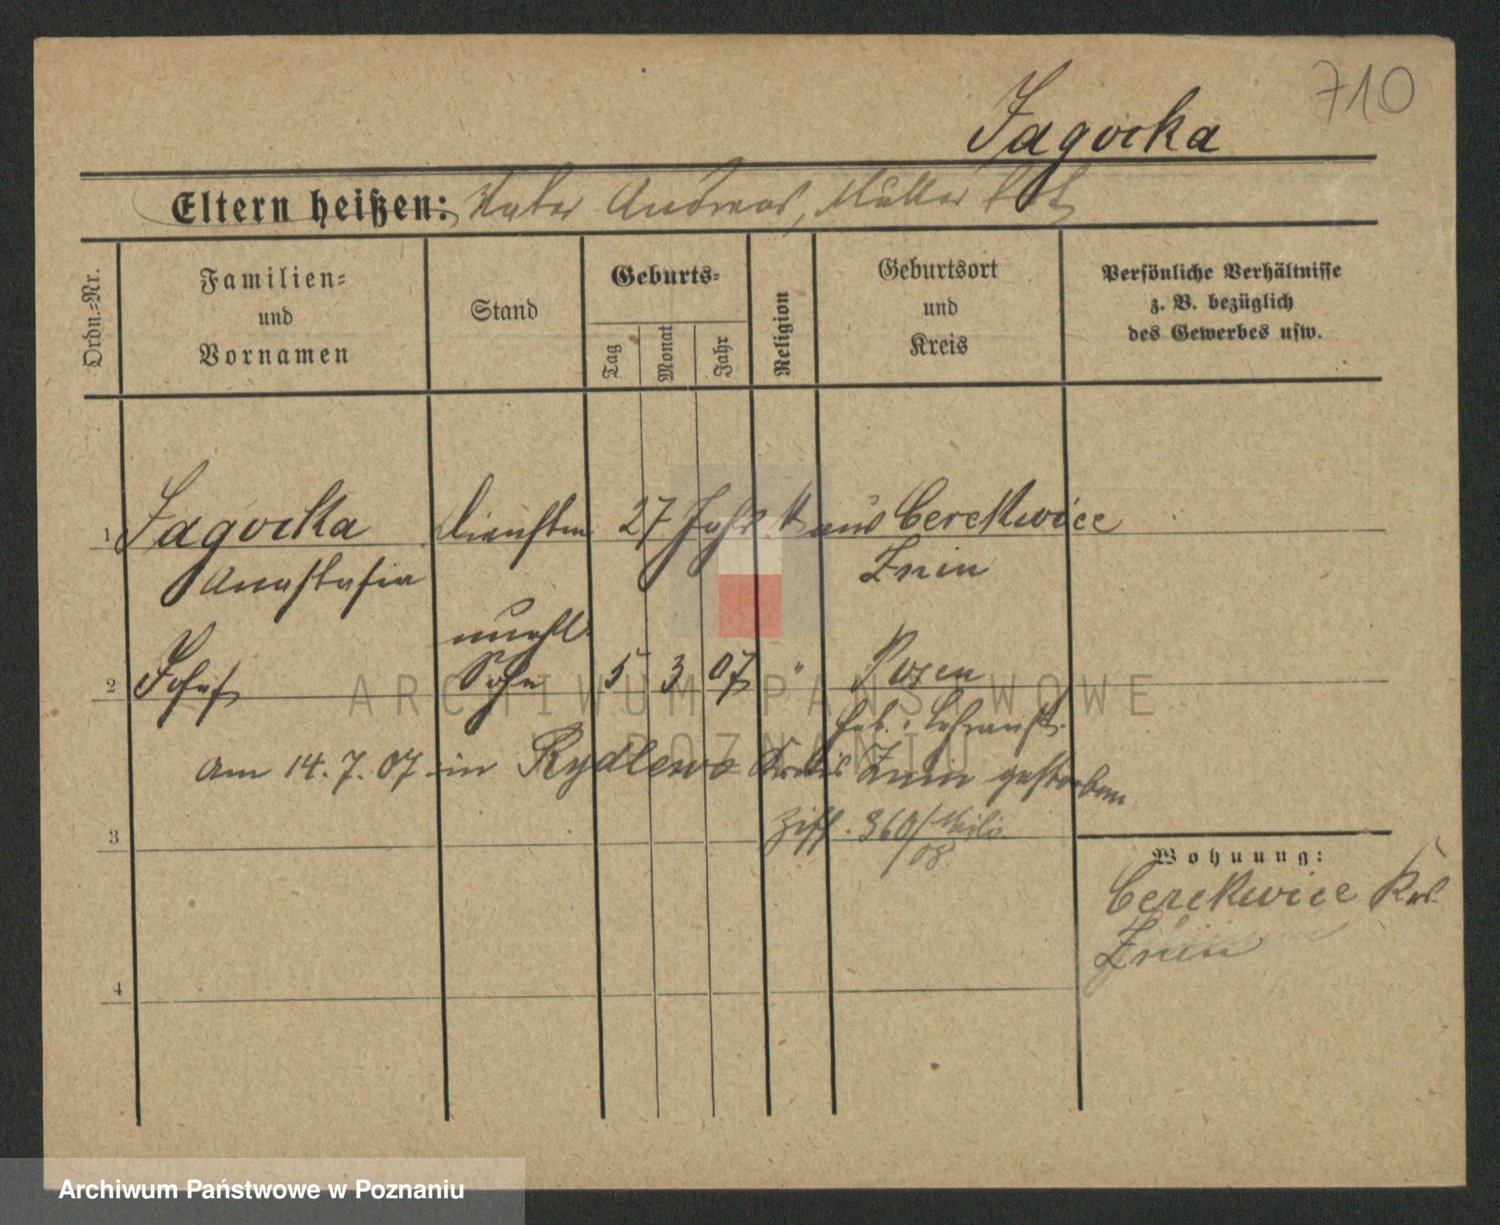 710
Jagocka
Eltern heißen: Vater Andreas, Mutter tot
Ordn.-Nr.
Familien-
und
Vornamen
Stand
Geburts-
Tag
Monat
Jahr
Religion
Geburtsort
und
Kreis
Persönliche Verhältnisse
z. B. bezüglich
des Gewerbes usw.
1 Jagocka 27 Jahr k aus Cerekwice
Anastasia Znin
unehl.
2 Josef Sohn 5 3 07 " Posen
geb. i.
am 14. 7. 07 in Rydlewo Kreis Znin gestorben
360
08.
3
Wohnung:
Cerekwice Krs.
Znin
4
ARCHIWUM PAŃSTWOWE
POZNANIU
Archiwum Państwowe w Poznaniu